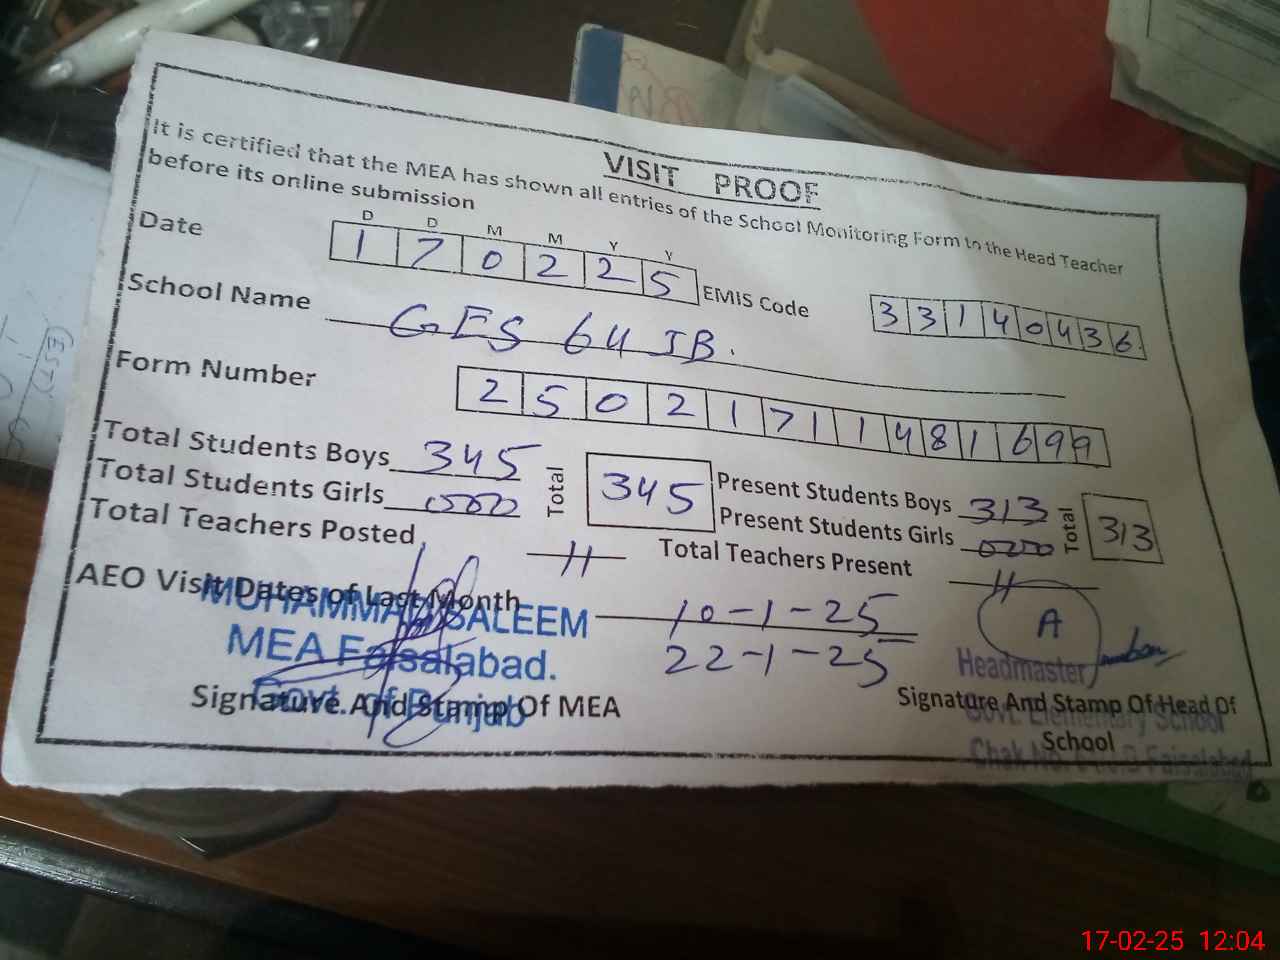 VISIT PROOF
It is certified that the MEA has shown all entries of the School Monitoring Form to the Head Teacher
before its online submission
D D M M Y Y
Date 1 7 0 2 2 5 EMIS Code 3 3 1 4 0 4 3 6
School Name GES 64 JB.
Form Number 2 5 0 2 1 7 1 1 4 8 1 6 9 9
Total Students Boys 345 Total 345 Present Students Boys 313 Total 313
Total Students Girls 000 Present Students Girls 000
Total Teachers Posted 11 Total Teachers Present 11
AEO Visit Dates of Last Month 10-1-25
22-1-25
A
MUHAMMAD SALEEM
MEA Faisalabad.
Govt. of Punjab
Signature And Stamp Of MEA
Headmaster
Govt. Elementary School
Chak No. Faisalabad
Signature And Stamp Of Head Of
School
17-02-25 12:04